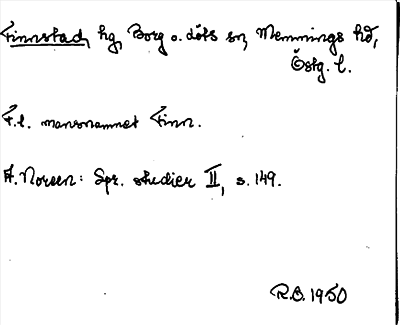 Finnstad, hg, Borg o. Löts sn, Memmings hd,
Östg. l.
F.l. mansnamnet Finn.
A. Noreen: Spr. studier II, s. 149.
R.O. 1950